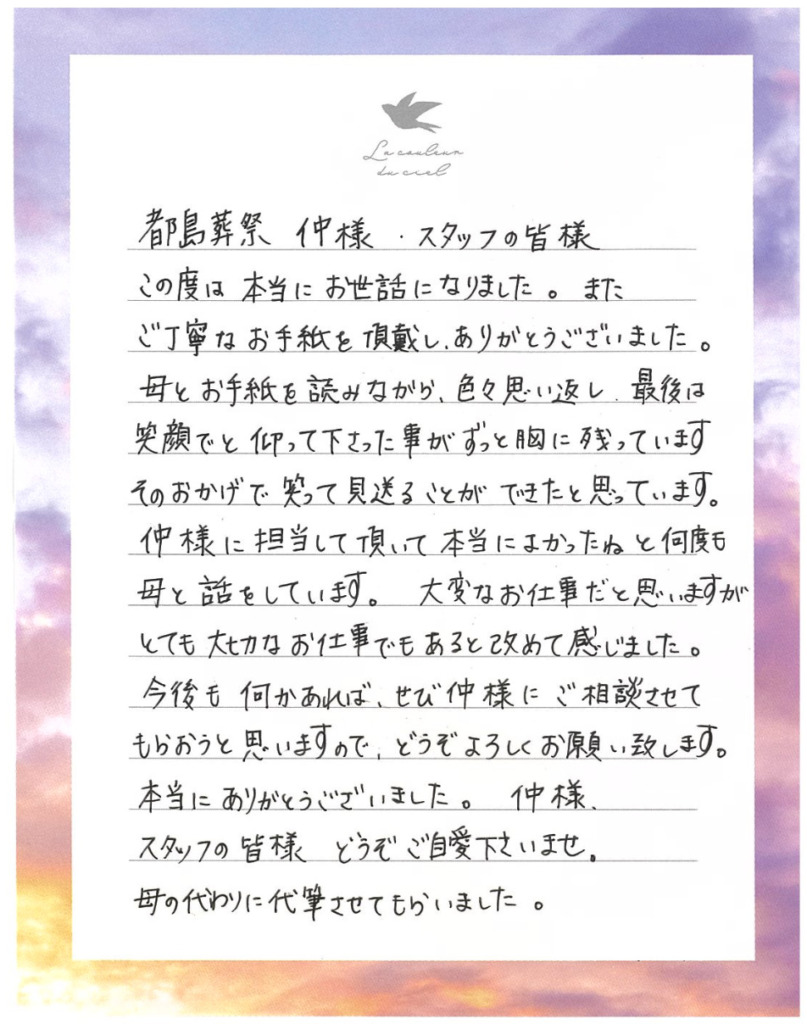 La couleur
du ciel
都島葬祭 仲様 ・スタッフの皆様
この度は 本当に お世話になりました。 また
ご丁寧な お手紙を 頂戴し、ありがとうございました。
母と お手紙を 読みながら、色々思い返し、最後は
笑顔でと 仰って下さった事が ずっと胸に 残っています
そのおかげで 笑って見送ることが できたと思っています。
仲様に 担当して頂いて 本当によかったね と 何度も
母と 話をしています。 大変なお仕事だと思いますが
とても 大切な お仕事でもあると 改めて感じました。
今後も 何かあれば、ぜひ 仲様に ご相談させて
もらおうと 思いますので、どうぞ よろしくお願い致します。
本当に ありがとうございました。 仲様、
スタッフの 皆様 どうぞ ご自愛下さいませ。
母の代わりに 代筆させてもらいました。